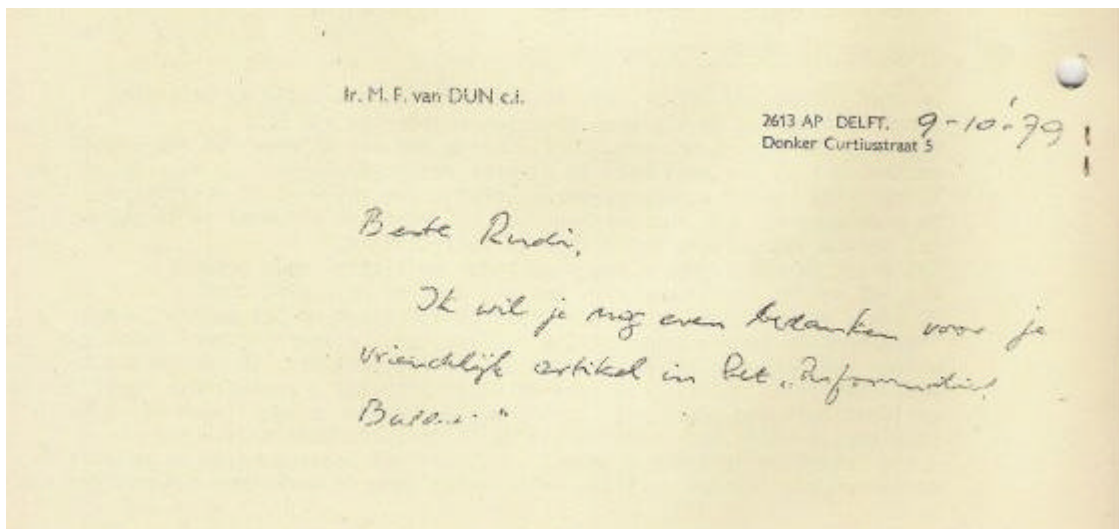 Ir. M. F. van DUN c.i.
2613 AP DELFT, 9-10-'79
Donker Curtiusstraat 5
Beste Rudi,
Ik wil je nog even bedanken voor je
vriendelijk artikel in het „Informatie